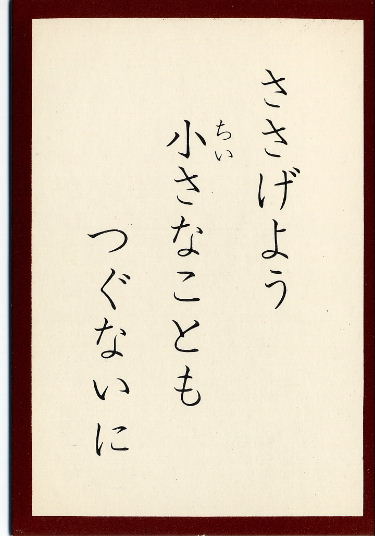 ささげよう
小さなことも
ちい
つぐないに